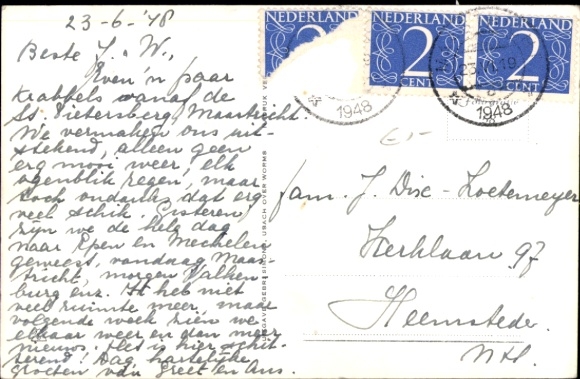 23-6-'48
Beste J. & W.,
Even 'n paar
krabbels vanaf de
St. Pietersberg, Maastricht.
We vermaken ons uit-
stekend, alleen geen
erg mooi weer, elk
ogenblik regen, maar
toch ondanks dat erg
veel schik. Gisteren
zijn we de hele dag
naar Epen en Mechelen
geweest, vandaag Maas-
tricht, morgen Valken-
burg enz. Ik heb niet
veel ruimte meer, maar
volgende week zien we
elkaar weer en dan meer
nieuws. Het is hier schit-
terend! Dag, hartelijke
groeten van Greet en Ans.
NEDERLAND
NEDERLAND
2
CENT
NEDERLAND
2
CENT
1948
1948
UITGAVE GEBR. SIMONS, UBACH OVER WORMS
fam. J. Dix-Zoetemeyer
Kerklaan 97
Heemstede
N.H.